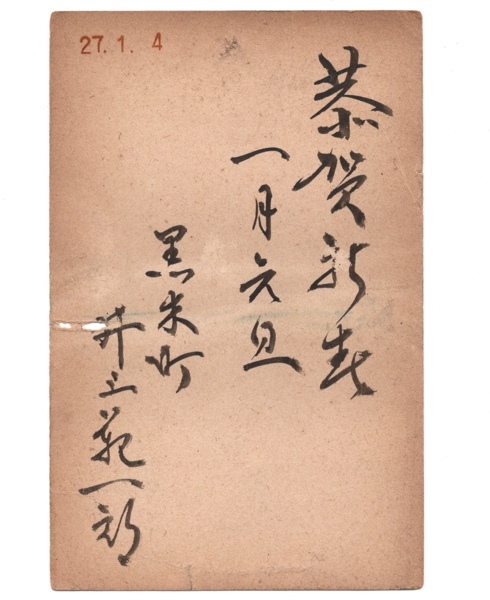 27.1.4
恭賀新春
一月元旦
黒木町
井上範一郎